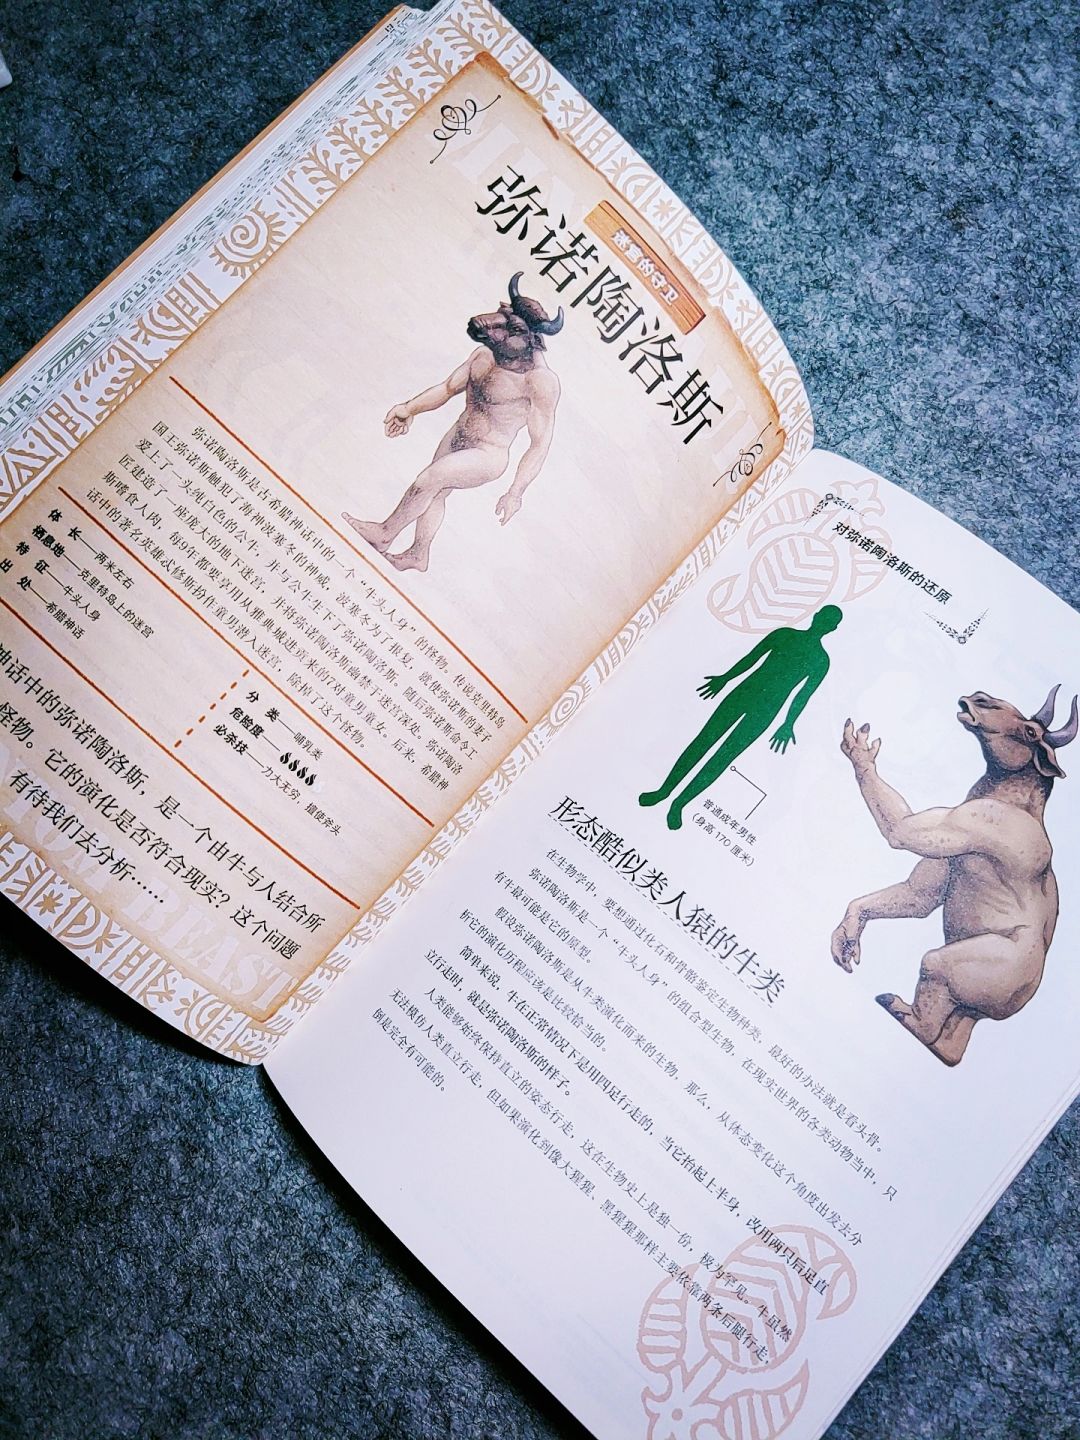 迷宫的守卫
弥诺陶洛斯
弥诺陶洛斯是古希腊神话中的一个“牛头人身”的怪物。传说克里特岛
国王弥诺斯触犯了海神波塞冬的神威，波塞冬为了报复，就使弥诺斯的妻子
爱上了一头纯白色的公牛，并与公牛生下了弥诺陶洛斯。随后弥诺斯命令工
匠建造了一座庞大的地下迷宫，并将弥诺陶洛斯幽禁于迷宫深处。弥诺陶洛
斯嗜食人肉，每9年都要享用从雅典城进贡来的7对童男童女。后来，希腊神
话中的著名英雄忒修斯扮作童男潜入迷宫，除掉了这个怪物。
体 长——两米左右
栖息地——克里特岛上的迷宫
特 征——牛头人身
出 处——希腊神话
分 类——哺乳类
危险度——
必杀技——力大无穷，擅使斧头
神话中的弥诺陶洛斯，是一个由牛与人结合所
怪物。它的演化是否符合现实？这个问题
有待我们去分析……
对弥诺陶洛斯的还原
普通成年男性
（身高170厘米）
形态酷似类人猿的牛类
在生物学中，要想通过化石和骨骼鉴定生物种类，最好的办法就是看头骨。
弥诺陶洛斯是一个“牛头人身”的组合型生物，在现实世界的各类动物当中，只
有牛最可能是它的原型。
假设弥诺陶洛斯是从牛类演化而来的生物，那么，从体态变化这个角度出发去分
析它的演化历程应该是比较恰当的。
简单来说，牛在正常情况下是用四足行走的，当它抬起上半身，改用两只后足直
立行走时，就是弥诺陶洛斯的样子。
人类能够始终保持直立的姿态行走，这在生物史上是独一份，极为罕见。牛虽然
无法模仿人类直立行走，但如果演化到像大猩猩、黑猩猩那样主要依靠两条后腿行走，
倒是完全有可能的。